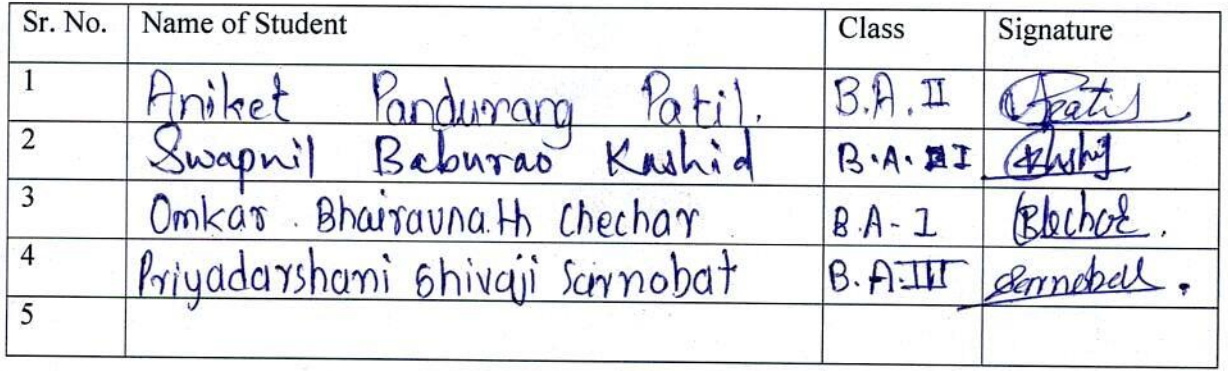 Sr. No. Name of Student Class Signature
1 Aniket Pandurang Patil. B.A. II Patil
2 Swapnil Baburao Kashid B.A. I Kashid
3 Omkar . Bhairavnath Chechar B.A - I
4 Priyadarshani Shivaji Sarnobat B.A. III Sarnobat .
5